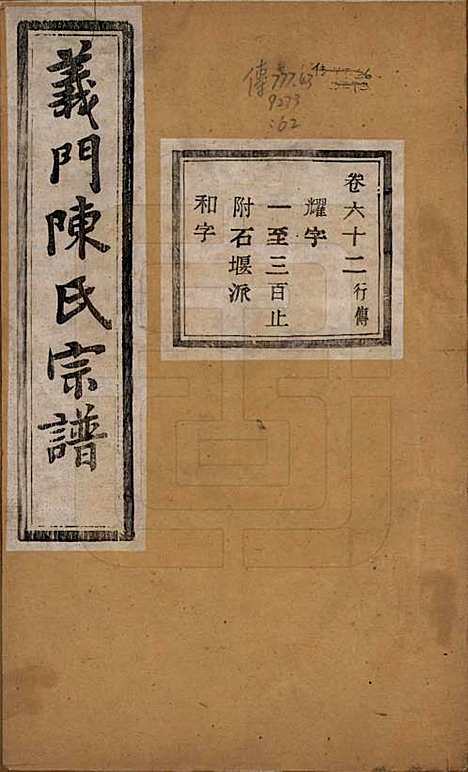 義門陳氏宗譜
卷六十二行傳
耀字
一至三百止
附石堰派
和字
傳
9273
:62